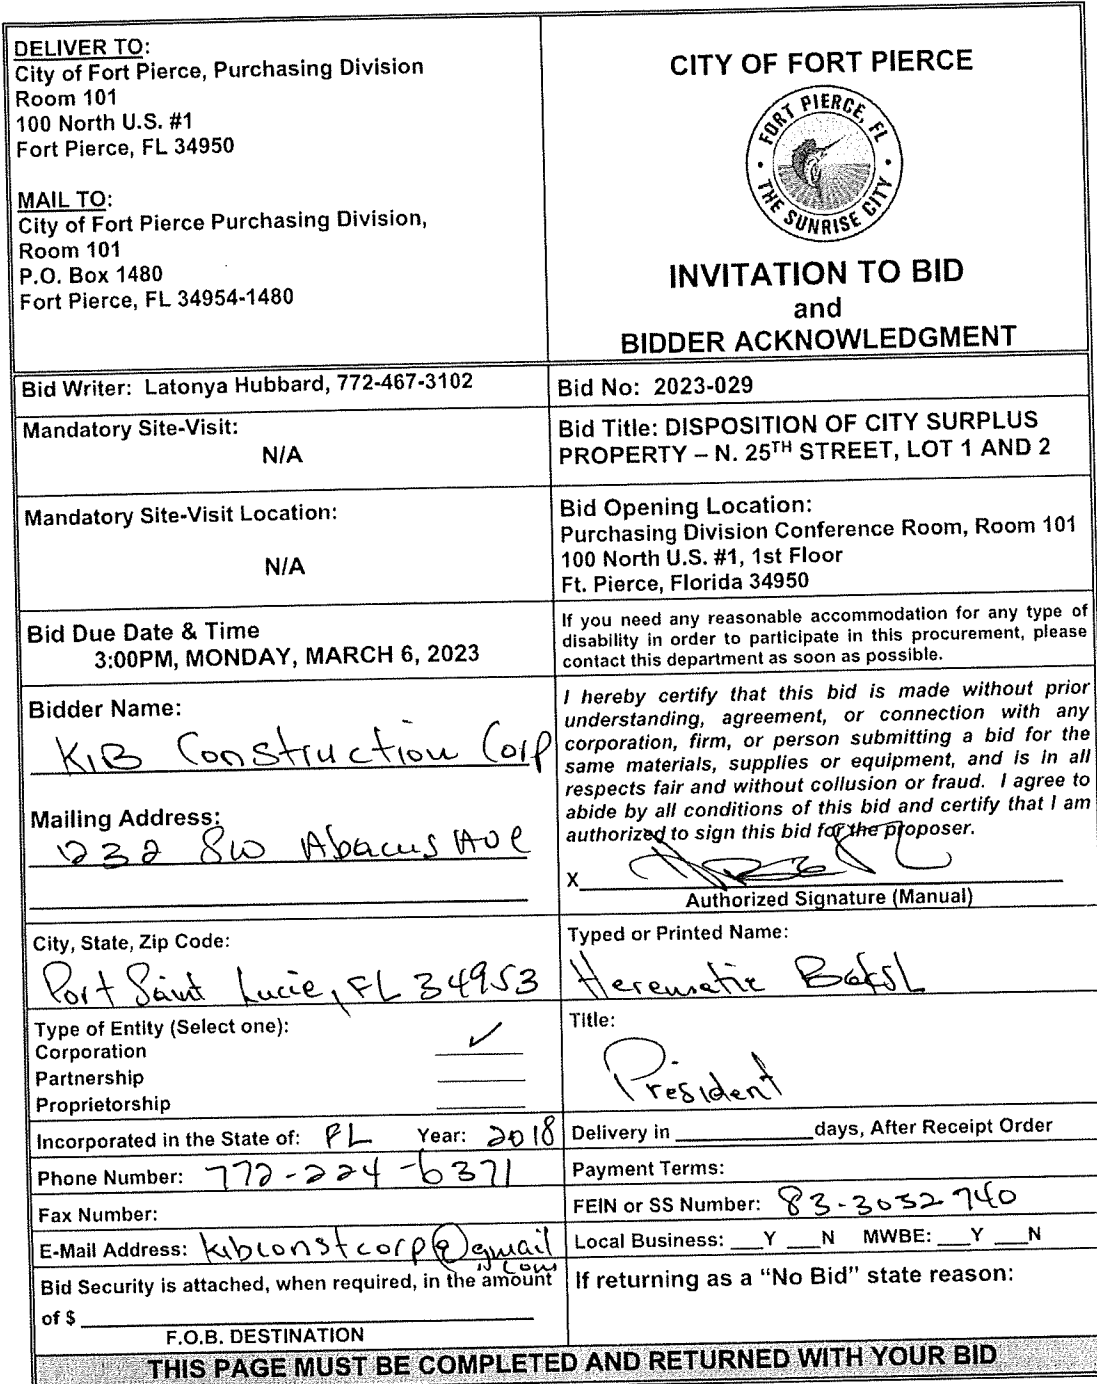 DELIVER TO:
City of Fort Pierce, Purchasing Division
Room 101
100 North U.S. #1
Fort Pierce, FL 34950
MAIL TO:
City of Fort Pierce Purchasing Division,
Room 101
P.O. Box 1480
Fort Pierce, FL 34954-1480
CITY OF FORT PIERCE
FORT PIERCE, FL
THE SUNRISE CITY
INVITATION TO BID
and
BIDDER ACKNOWLEDGMENT
Bid Writer: Latonya Hubbard, 772-467-3102
Bid No: 2023-029
Mandatory Site-Visit:
N/A
Bid Title: DISPOSITION OF CITY SURPLUS
PROPERTY – N. 25TH STREET, LOT 1 AND 2
Mandatory Site-Visit Location:
N/A
Bid Opening Location:
Purchasing Division Conference Room, Room 101
100 North U.S. #1, 1st Floor
Ft. Pierce, Florida 34950
Bid Due Date & Time
3:00PM, MONDAY, MARCH 6, 2023
If you need any reasonable accommodation for any type of
disability in order to participate in this procurement, please
contact this department as soon as possible.
Bidder Name:
KIB Construction Corp
Mailing Address:
1232 SW Abacus Ave
I hereby certify that this bid is made without prior
understanding, agreement, or connection with any
corporation, firm, or person submitting a bid for the
same materials, supplies or equipment, and is in all
respects fair and without collusion or fraud. I agree to
abide by all conditions of this bid and certify that I am
authorized to sign this bid for the proposer.
X
Authorized Signature (Manual)
City, State, Zip Code:
Port Saint Lucie, FL 34953
Typed or Printed Name:
Type of Entity (Select one):
Corporation ✓
Partnership
Proprietorship
Title:
President
Incorporated in the State of: FL Year: 2018
Delivery in ____ days, After Receipt Order
Phone Number: 772-224-6371
Payment Terms:
Fax Number:
FEIN or SS Number: 83-3032740
E-Mail Address: kibconstcorp@gmail
.com
Local Business: ___Y ___N MWBE: ___Y ___N
Bid Security is attached, when required, in the amount
of $
F.O.B. DESTINATION
If returning as a "No Bid" state reason:
THIS PAGE MUST BE COMPLETED AND RETURNED WITH YOUR BID